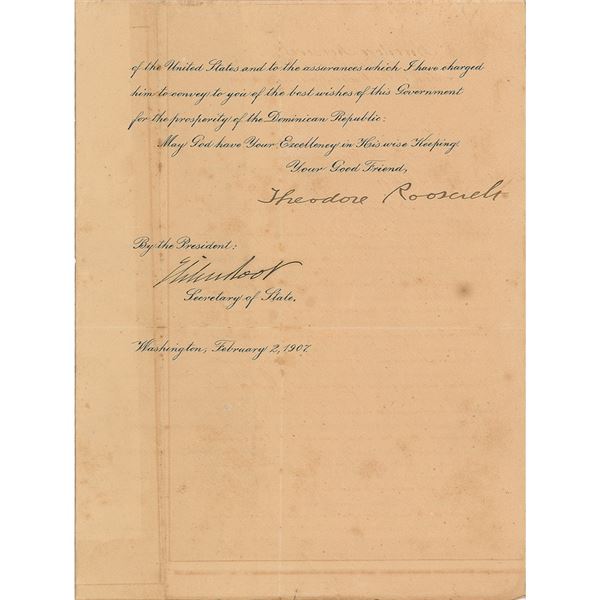 of the United States and to the assurances which I have charged
him to convey to you of the best wishes of this Government
for the prosperity of the Dominican Republic:
May God have Your Excellency in His wise Keeping.
Your Good Friend,
Theodore Roosevelt
By the President:
Elihu Root
Secretary of State.
Washington, February 2, 1907.